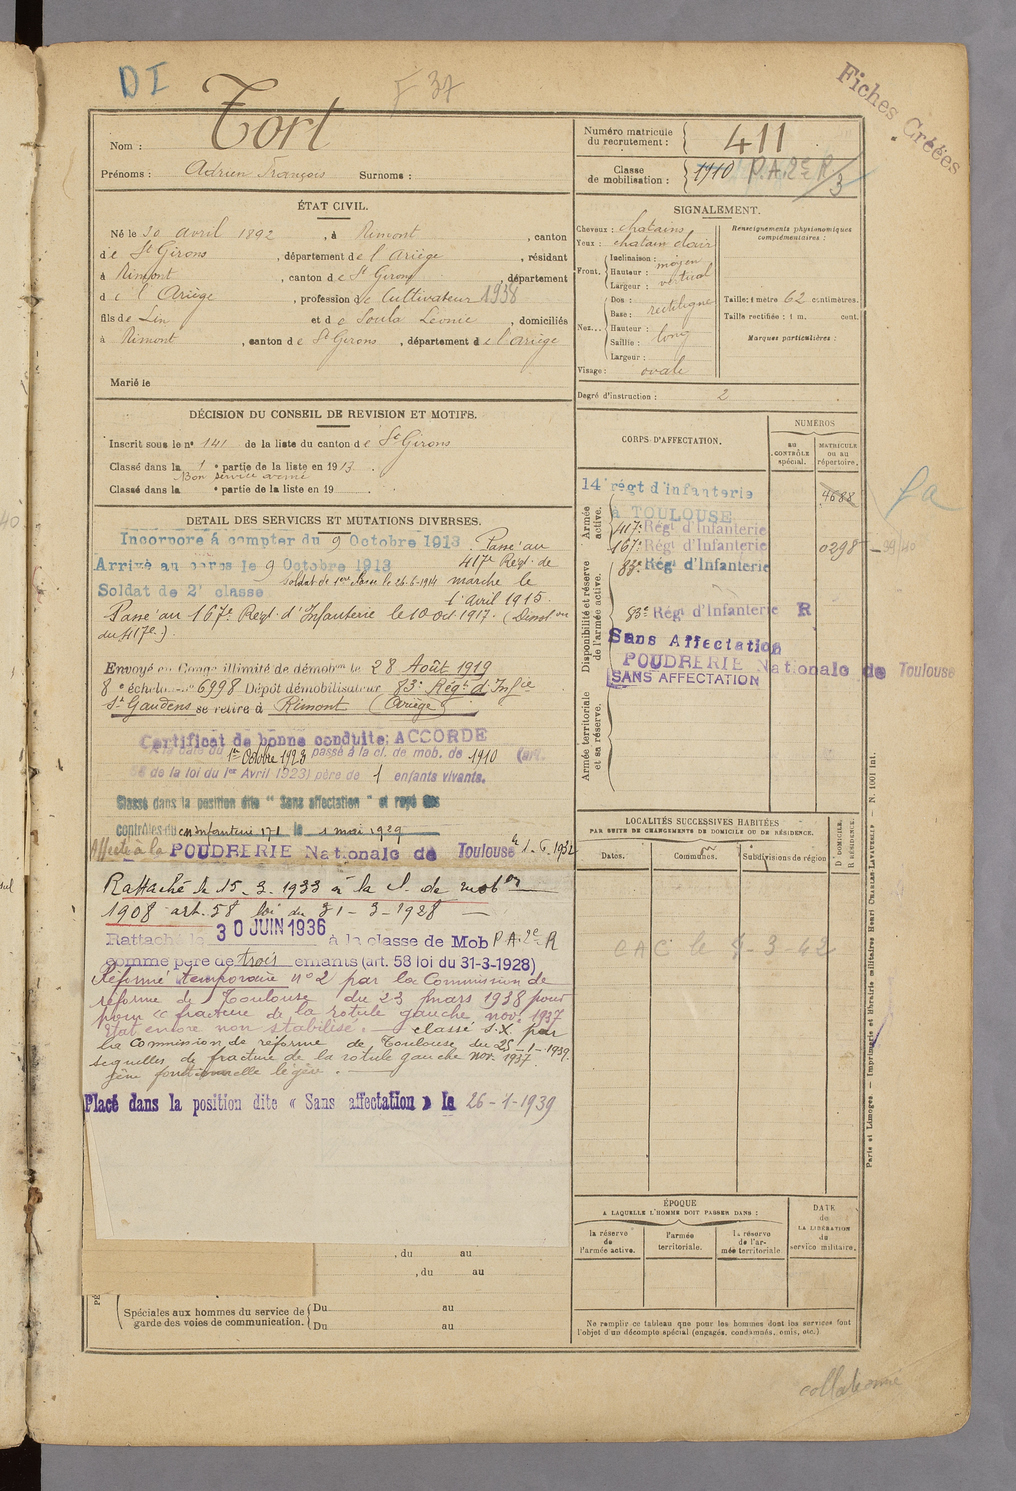 DI
F 37
Fiches Créées
Nom : Tort
Prénoms : Adrien François Surnoms :
Numéro matricule du recrutement : 411
Classe de mobilisation : 1910 P.A.2e R/3
ÉTAT CIVIL.
Né le 30 avril 1892, à Rimont, canton
de St Girons, département de l'Ariège, résidant
à Rimont, canton de St Girons, département
de l'Ariège, profession de Cultivateur 1938
fils de Lin et de Soula Léonie, domiciliés
à Rimont, canton de St Girons, département de l'ariège
Marié le
SIGNALEMENT.
Cheveux : chatains
Yeux : chatain clair
Front. Inclinaison : moyen
Hauteur : vertical
Largeur :
Nez... Dos : rectiligne
Base :
Hauteur : long
Saillie :
Largeur :
Visage : ovale
Renseignements physionomiques complémentaires :
Taille : 1 mètre 62 centimètres.
Taille rectifiée : 1 m. cent.
Marques particulières :
Degré d'instruction : 2
DÉCISION DU CONSEIL DE REVISION ET MOTIFS.
Inscrit sous le n° 141 de la liste du canton de St Girons
Classé dans la 1e partie de la liste en 1913.
Bon service armé
Classé dans la e partie de la liste en 19 .
DETAIL DES SERVICES ET MUTATIONS DIVERSES.
Incorporé à compter du 9 Octobre 1913. Passé au
Arrivé au corps le 9 Octobre 1913 417e Régt. de
soldat de 1ère classe le 26.6.1914 marche le
Soldat de 2e classe 1 avril 1915.
Passé au 167e Régt. d'Infanterie le 10 oct 1917. (Dissolon
du 417e).
Envoyé en Congé illimité de démobon le 28 Août 1919
8e échelon n° 6998 Dépôt démobilisateur 83e Régt d'Infie
St Gaudens se retire à Rimont (Ariège)
Certificat de bonne conduite: ACCORDE
1er Octobre 1923 passé à la cl. de mob. de 1910 (art.
58 de la loi du 1er Avril 1923) père de 1 enfants vivants.
Classé dans la position dite "Sans affectation" et rayé des
contrôles du cm Infanterie 171 le 1 mai 1929
Affecté à la POUDRERIE Nationale de Toulouse le 1.6.1932
Rattaché le 15.3.1933 à la cl. de mobon
1908 art. 58 loi du 31-3-1928
Rattaché le 30 JUIN 1936 à la classe de Mob P.A.2e R
comme père de trois enfants (art. 58 loi du 31-3-1928)
Réformé temporaire n°2 par la Commission de
réforme de Toulouse du 23 mars 1938 pour
pour « fracture de la rotule gauche nov. 1937
Etat encore non stabilisé. — classé S.X. par
la Commission de réforme de Toulouse du 25-1-1939.
séquelles de fracture de la rotule gauche nov. 1937.
gêne fonctionnelle légère. —
Placé dans la position dite « Sans affectation » le 26-1-1939
, du au
, du au
Spéciales aux hommes du service de garde des voies de communication.
Du au
Du au
CORPS D'AFFECTATION.
NUMÉROS
au CONTRÔLE spécial.
MATRICULE ou au répertoire.
Armée active.
Disponibilité et réserve de l'armée active.
Armée territoriale et sa réserve.
14e régt d'infanterie 4688
à TOULOUSE
417e Rég. d'Infanterie
167e Rég. d'Infanterie 0298
83e Rég. d'Infanterie
83e Régt d'Infanterie R
Sans Affectation
POUDRERIE Nationale de Toulouse
SANS AFFECTATION
LOCALITÉS SUCCESSIVES HABITÉES
PAR SUITE DE CHANGEMENTS DE DOMICILE OU DE RÉSIDENCE.
Dates.
Communes.
Subdivisions de région
D. DOMICILE.
R. RÉSIDENCE.
CAC le 5-3-42
ÉPOQUE
A LAQUELLE L'HOMME DOIT PASSER DANS :
la réserve de l'armée active.
l'armée territoriale.
la réserve de l'armée territoriale
DATE de LA LIBÉRATION du service militaire.
Ne remplir ce tableau que pour les hommes dont les services font
l'objet d'un décompte spécial (engagés, condamnés, omis, etc.)
Paris et Limoges — Imprimerie et librairie militaires Henri CHARLES-LAVAUZELLE — N. 1001 Int.